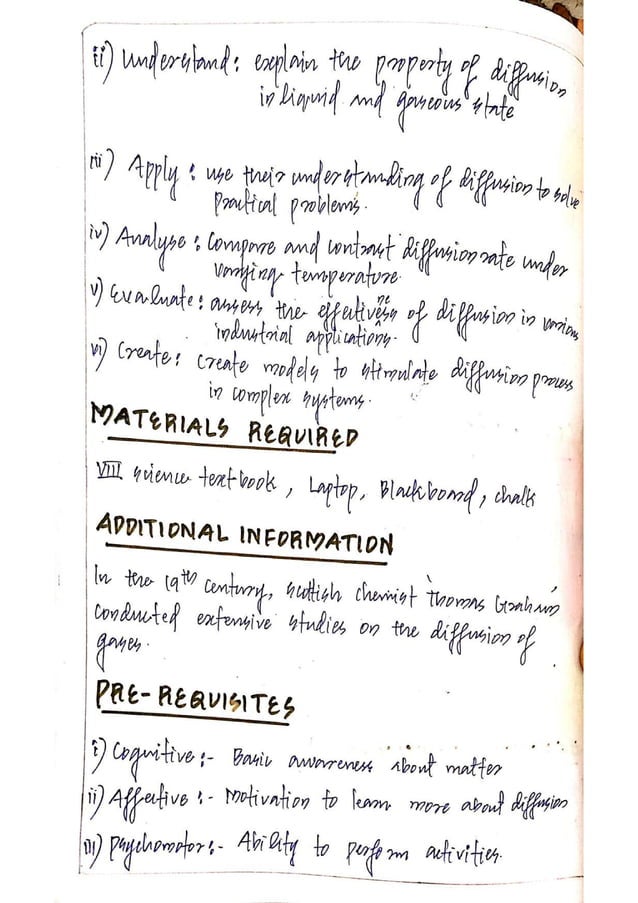 ii) Understand: explain the property of diffusion
in liquid and gaseous state
iii) Apply: use their understanding of diffusion to solve
practical problems.
iv) Analyse: Compare and contrast diffusion rate under
varying temperature.
v) Evaluate: assess the effectiveness of diffusion in various
industrial applications.
vi) Create: create models to stimulate diffusion process
in complex systems.
MATERIALS REQUIRED
VIII science textbook, Laptop, Blackboard, chalk
ADDITIONAL INFORMATION
In the 19th century, scottish chemist 'Thomas Graham'
conducted extensive studies on the diffusion of
gases.
PRE-REQUISITES
i) Cognitive:- Basic awareness about matter
ii) Affective:- Motivation to learn more about diffusion
iii) Psychomotor:- Ability to perform activities.